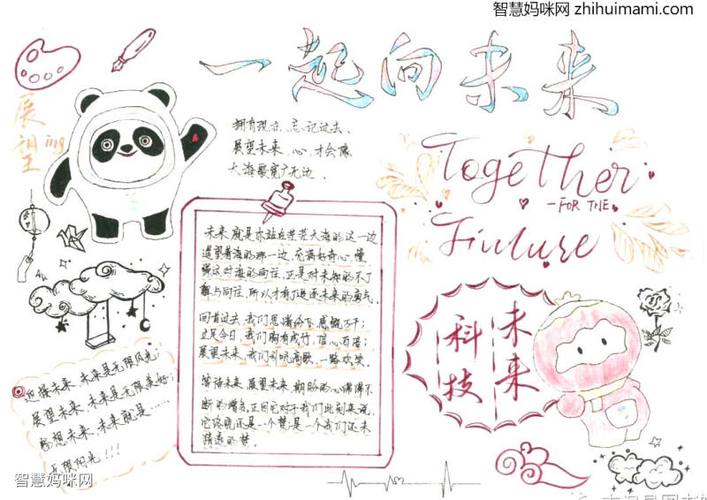 智慧妈咪网 zhihuimami.com
一起向未来
展望
ing
拥有现在，忘记过去、
展望未来、心，才会像
大海那宽广无边．
Together
—FOR THE—
Future
未来就是你站在茫茫大海的这一边
遥望着海的那一边，充满好奇心，憧
憬这对海的向往，正是对未知的不了
解与向往，所以才有了追逐未来的勇气。
回首过去，我们思绪
立足今日，我们胸有成竹，信心百倍；
展望未来，我们引吭高歌，一路欢笑。
展望未来
不断的增多，正因它对于我们此刻来说，
它终究还是一个梦是一个我们还未
的梦．
未来
科技
未来 未来是无限风光；
展望未来，未来是无限美好；
感想未来，未来就是……
无限阳光！！！
智慧妈咪网